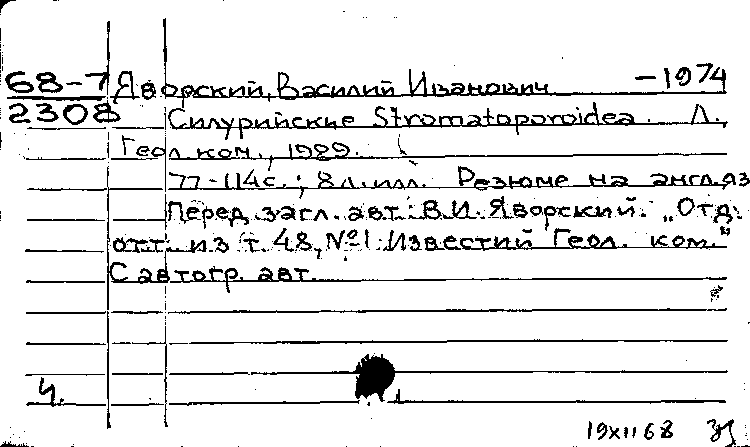 68-7 Яворский, Василий Иванович —1974
2308 Силурийские Stromatoporoidea. Л.,
Геол. ком., 1929.
77-114с.; 8 л. илл. Резюме на англ. яз.
Перед загл. авт.: В.И. Яворский. „Отд.
отт. из т. 48, №1 Известий Геол. ком."
С автогр. авт.
Ч.
19XII68